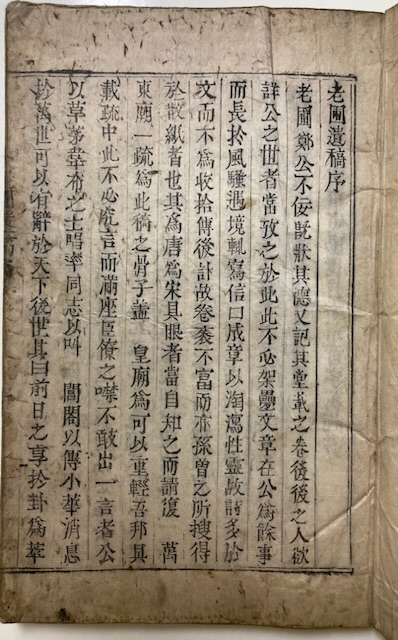 老圃遺稿序
老圃鄭公不佞旣狀其德又記其堂載之卷後後之人欲
詳公之世者當攷之於此此不必架疊文章在公爲餘事
而長扵風騷遇境輒寫信口成章以淘瀉性靈故詩多於
文而不爲收拾傳後計故卷袠不富而亦孫曾之所搜得
於敗紙者也其爲唐爲宋具眼者當自知之而請復 萬
東廟一疏爲此稿之骨子盖 皇廟爲可以重輕吾邦具
載疏中此不必疣言而滿座臣僚之噤不敢出一言者公
以草茅韋布之士唱率同志以叫 閶闔以傳小華消息
扵萬世可以有辭於天下後世其曰前日之享扵卦爲萃